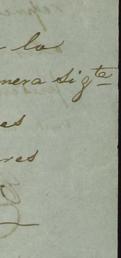 la
nera sigte
es
res